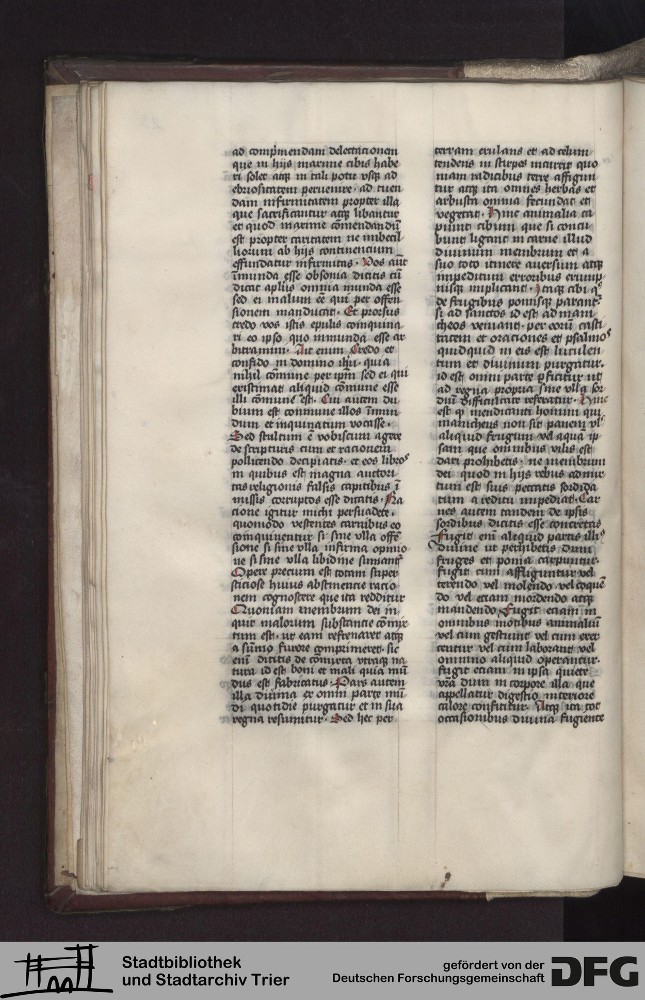 ad comp̄mendam delectacionem
que in hijs maxime cibis habe
ri solet atq; in tali potu vsq; ad
ebriositatem peruenire · ad tuen
dam infirmitatem propter illa
que sacrificantur atq; libantur
et quod maxime cōmendandū
est propter caritatem ne imbecil
liorum ab hijs continencium
effundatur infirmitas · Vos aūt
īmunda esse obsonia dicitis cū
dicat aplūs omnia munda esse
sed ei malum eē qui per offen
sionem manducat · Et prorsus
credo vos istis epulis comquina
ri eo ipso quo inmunda esse ar
bitramini · Ait enim Credo et
confido in domino ihū · quia
nihil cōmune per ip̄m sed ei qui
existimat aliquid cōmune esse
illi cōmune est · Cui autem du
bium est commune illos īmun
dum et inquinatum vocasse ·
Sed stultum ē vobiscum agere
de scripturis cum et racionem
pollicendo decipiatis · et eos libros
in quibus est magna auctori
tas religionis falsis capitibus ī
missis corruptos esse dicatis · Ra
cione igitur michi persuadete ·
quomodo vescentes carnibus eo
comquinentur si sine vlla offē
sione si sine vlla infirma opinio
ne si sine vlla libidine sumant
Opere precium est totam super
sticiose huius abstinencie racio
nem cognoscere que ita redditur
Quoniam membrum dei in
quit malorum substancie cōmix
tum est · ut eam refrenaret atq;
a sūmo furore comprimeret · sic
enī dicitis de cōmixta vtraq; na
tura id est boni et mali quia mū
dus est fabricatus · Pars autem
illa diuina ex omni parte mū
di quotidie purgatur et in sua
regna resumitur · Sed hec per
terram exulans et ad celum
tendens in stirpes incurrit quo
niam radicibus terre affigun
tur atq; ita omnes herbas et
arbusta omnia fecundat et
vegetat · Hinc animalia ca
piunt cibum que si concu
bunt ligant in carne illud
diuinum membrum et a
suo toto itinere auersum atq;
impeditum erroribus erump
nisq; implicant · Itaq; cibi q̄
de frugibus pomisq; parant
si ad sanctos id est ad mani
cheos veniant · per eorū casti
tatem et oraciones et psalmos
quidquid in eis est luculen
tum et diuinum purgatur ·
id est omni parte p̄ficitur ut
ad regna propria sine vlla sor
diū difficultate referatur · Hinc
est q̄ mendicanti homini qui
manicheus non sit panem vl̄
aliquid frugum vel aqua ip
sam que omnibus vilis est
dari prohibetis · ne membrum
dei quod in hijs rebus admix
tum est suis peccatis sordida
tum a reditu impediat · Car
nes autem tandem de ipsis
sordibus dicitis esse concretas
Fugit enī aliquid partis illi
diuine ut perhibetis dum
fruges et poma carpuntur
fugit cum affliguntur vel
terendo vel molendo vel coquē
do vel etiam mordendo atq;
mandendo Fugit etiam in
omnibus motibus animaliū
vel cum gestiunt vel cum exer
centur vel cum laborant vel
omnino aliquid operantur ·
fugit etiam in ipsa quiete
nrā dum in corpore illa que
appellatur digestio interiore
calore conficitur · Atq; ita tot
occasionibus diuina fugiente
Stadtbibliothek
und Stadtarchiv Trier
gefördert von der
Deutschen Forschungsgemeinschaft
DFG